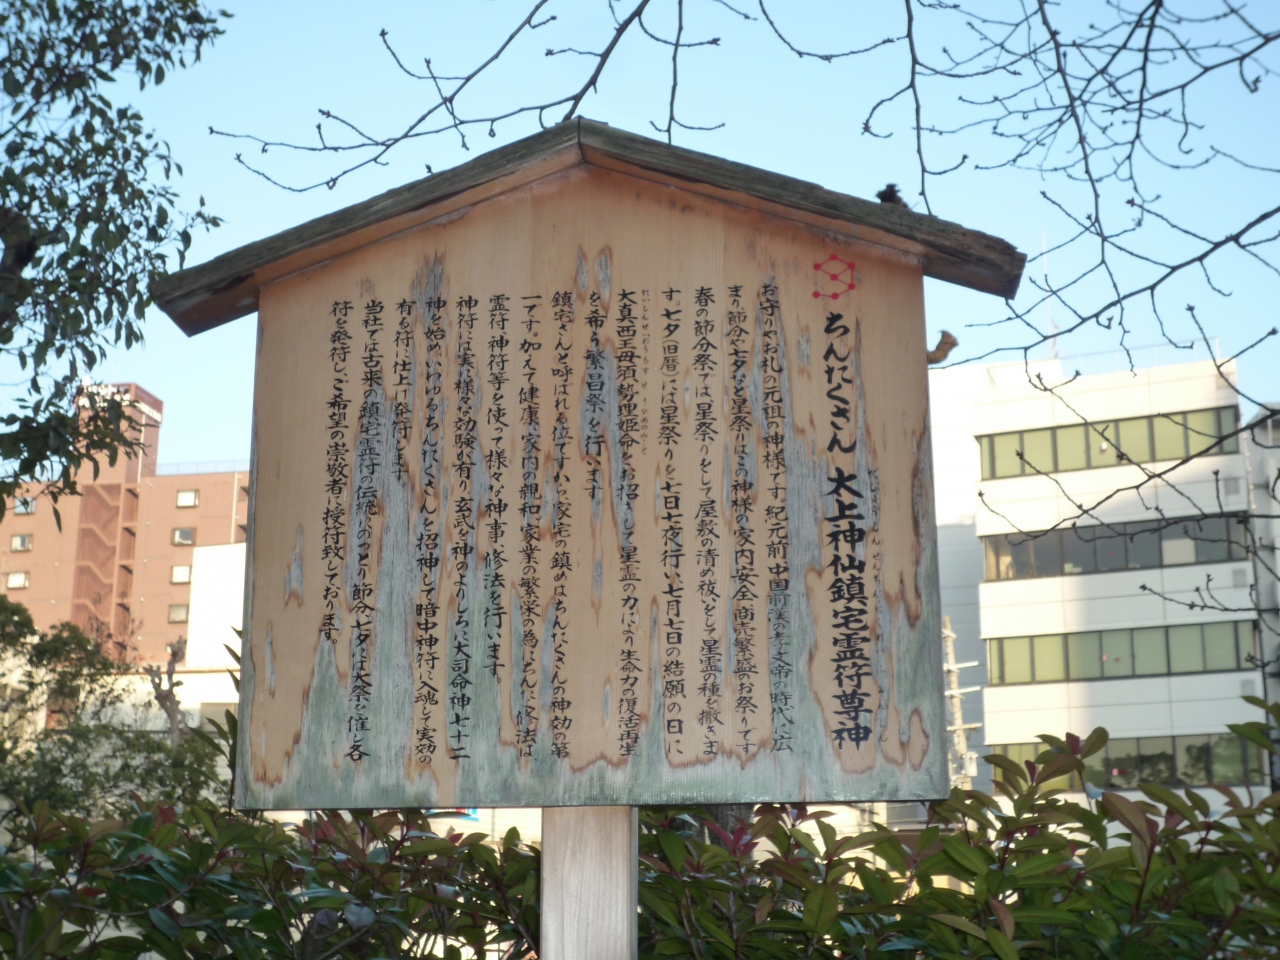 ちんたくさん 太上神仙鎮宅霊符尊神
お守りやお札の元祖の神様です。紀元前中国前漢の孝文帝の時代に広
まり節分や七夕など星祭りはこの神様の家内安全商売繁盛のお祭りです
春の節分祭では星祭りをして屋敷の清め祓いをして星霊の種を撒きま
す。七夕(旧暦)には星祭りを七日七夜行い七月七日の結願の日に
太真西王母須勢理姫命をお招きして星霊の力により生命力の復活再生
を希う繁昌祭を行います
鎮宅さんと呼ばれる位ですから家宅の鎮めはちんたくさんの神効の第
一です。加えて健康、家内の親和、家業の繁栄の為、ちんたく修法は
霊符神符等を使って様々な神事、修法を行います
神符には実に様々な効験が有り玄武を神のよりしろに大司命神七十二
神を始め、いわゆるちんたくさんを招神して暗中神符に入魂して実効の
有る符に仕上げ発符します。
当社では古来の鎮宅霊符の伝統にのっとり節分、七夕は大祭を催し各
符を発符し、ご希望の崇敬者に授符致しております。